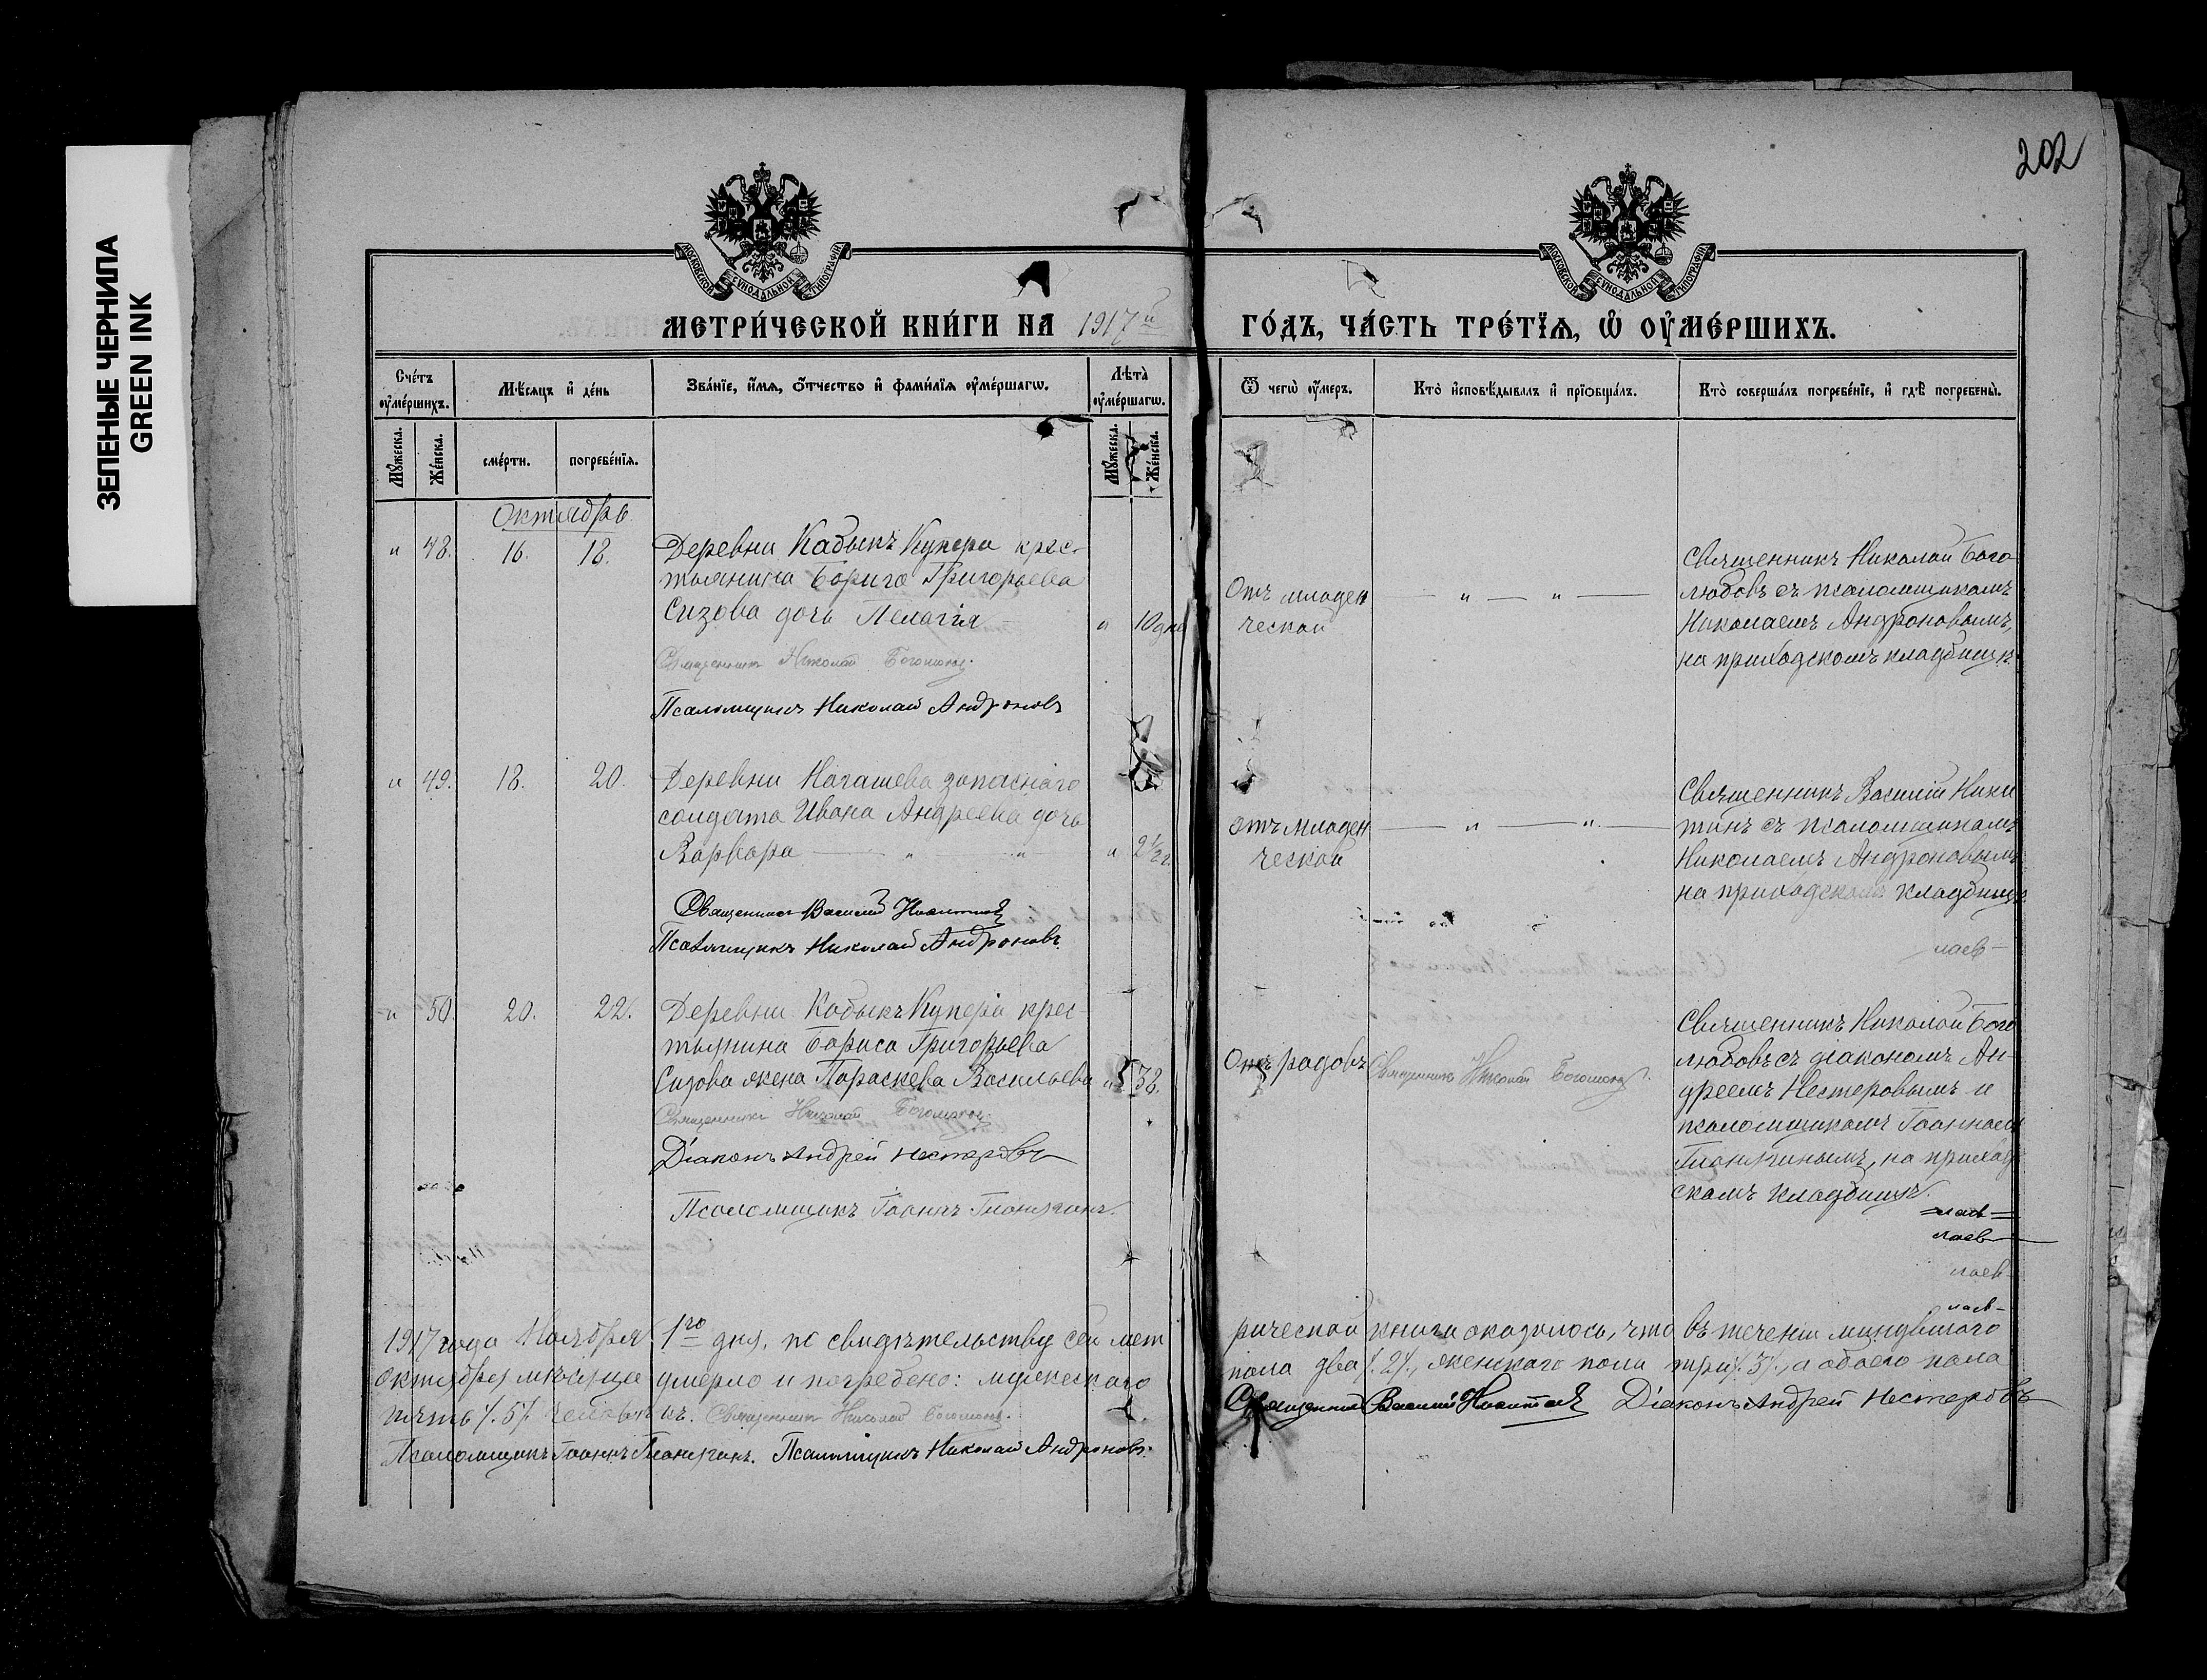 ЗЕЛЕНЫЕ ЧЕРНИЛА
GREEN INK
202
МОСКОВСКОЙ СѴНОДАЛЬНОЙ ТИПОГРАФІИ
МОСКОВСКОЙ СѴНОДАЛЬНОЙ ТИПОГРАФІИ
МЕТРИ́ЧЕСКОЙ КНИ́ГИ НА 1917й
ГО́ДЪ, ЧА́СТЬ ТРЕ́ТЇѦ, Ѡ҆ ОУ҆МЕ́РШИХЪ.
Сче́тъ оу҆ме́ршихъ.
Мѣ́сѧцъ и҆ де́нь
Зва́нїе, и҆́мѧ, ѻ҆́тчество и҆ фами́лїѧ оу҆ме́ршагѡ.
Лѣ̀та оу҆ме́ршагѡ.
Ѿ чегѡ̀ оу҆́меръ.
Кто̀ и҆сповѣ́дывалъ и҆ прїѡбща́лъ.
Кто̀ соверша́лъ погребе́нїе, и҆ гдѣ̀ погребены̀.
Мꙋ́жеска.
Же́нска.
сме́рти.
погребе́нїѧ.
Мꙋ́жеска.
Же́нска.
Октябрь
" 48. 16. 18. Деревни Кабыкъ Купера крес-
тьянина Бориса Григорьева
Сизова дочь Пелагія " 10 дне
Священникъ Николай Боголюбовъ.
Псаломщикъ Николай Андроновъ
Отъ младен
ческой
— " — " —
Священникъ Николай Бого
любовъ съ псаломщикомъ
Николаемъ Андроновымъ,
на приходскомъ кладбищѣ.
" 49. 18. 20. Деревни Качашева запаснаго
солдата Ивана Андреева дочь
Варвара — " — " " 2½ г.
Священникъ Василій Никитинъ
Псаломщикъ Николай Андроновъ.
отъ младен
ческой
— " — " —
Священникъ Василій Ники
тинъ съ псаломщикомъ
Николаемъ Андроновымъ
на приходскомъ кладбищѣ.
лаев-
" 50. 20. 22. Деревни Кабыкъ Купера крес-
тьянина Бориса Григорьева
Сизова жена Параскева Васильева " 38.
Священникъ Николай Боголюбовъ.
Діаконъ Андрей Нестеровъ
Псаломщикъ Іоаннъ
Отъ родовъ
Священникъ Николай Боголюбовъ.
Священникъ Николай Бого
любовъ съ діакономъ Ан-
дреемъ Нестеровымъ и
псаломщикомъ Іоанномъ
на приход
скомъ кладбищѣ.
лаев
лаев
лаев
лаев-
1917 года Ноября 1го дня, по свидѣтельству сей мет
рической книги оказалось, что въ теченіи минувшаго
октября мѣсяца умерло и погребено: мужескаго
пола два /.2/., женскаго пола три /.3/., а обоего пола
пять /.5/. человѣкъ. Священникъ Николай Боголюбовъ.
Священникъ Василій Никитинъ Діаконъ Андрей Нестеровъ
Псаломщикъ Іоаннъ Псаломщикъ Николай Андроновъ.